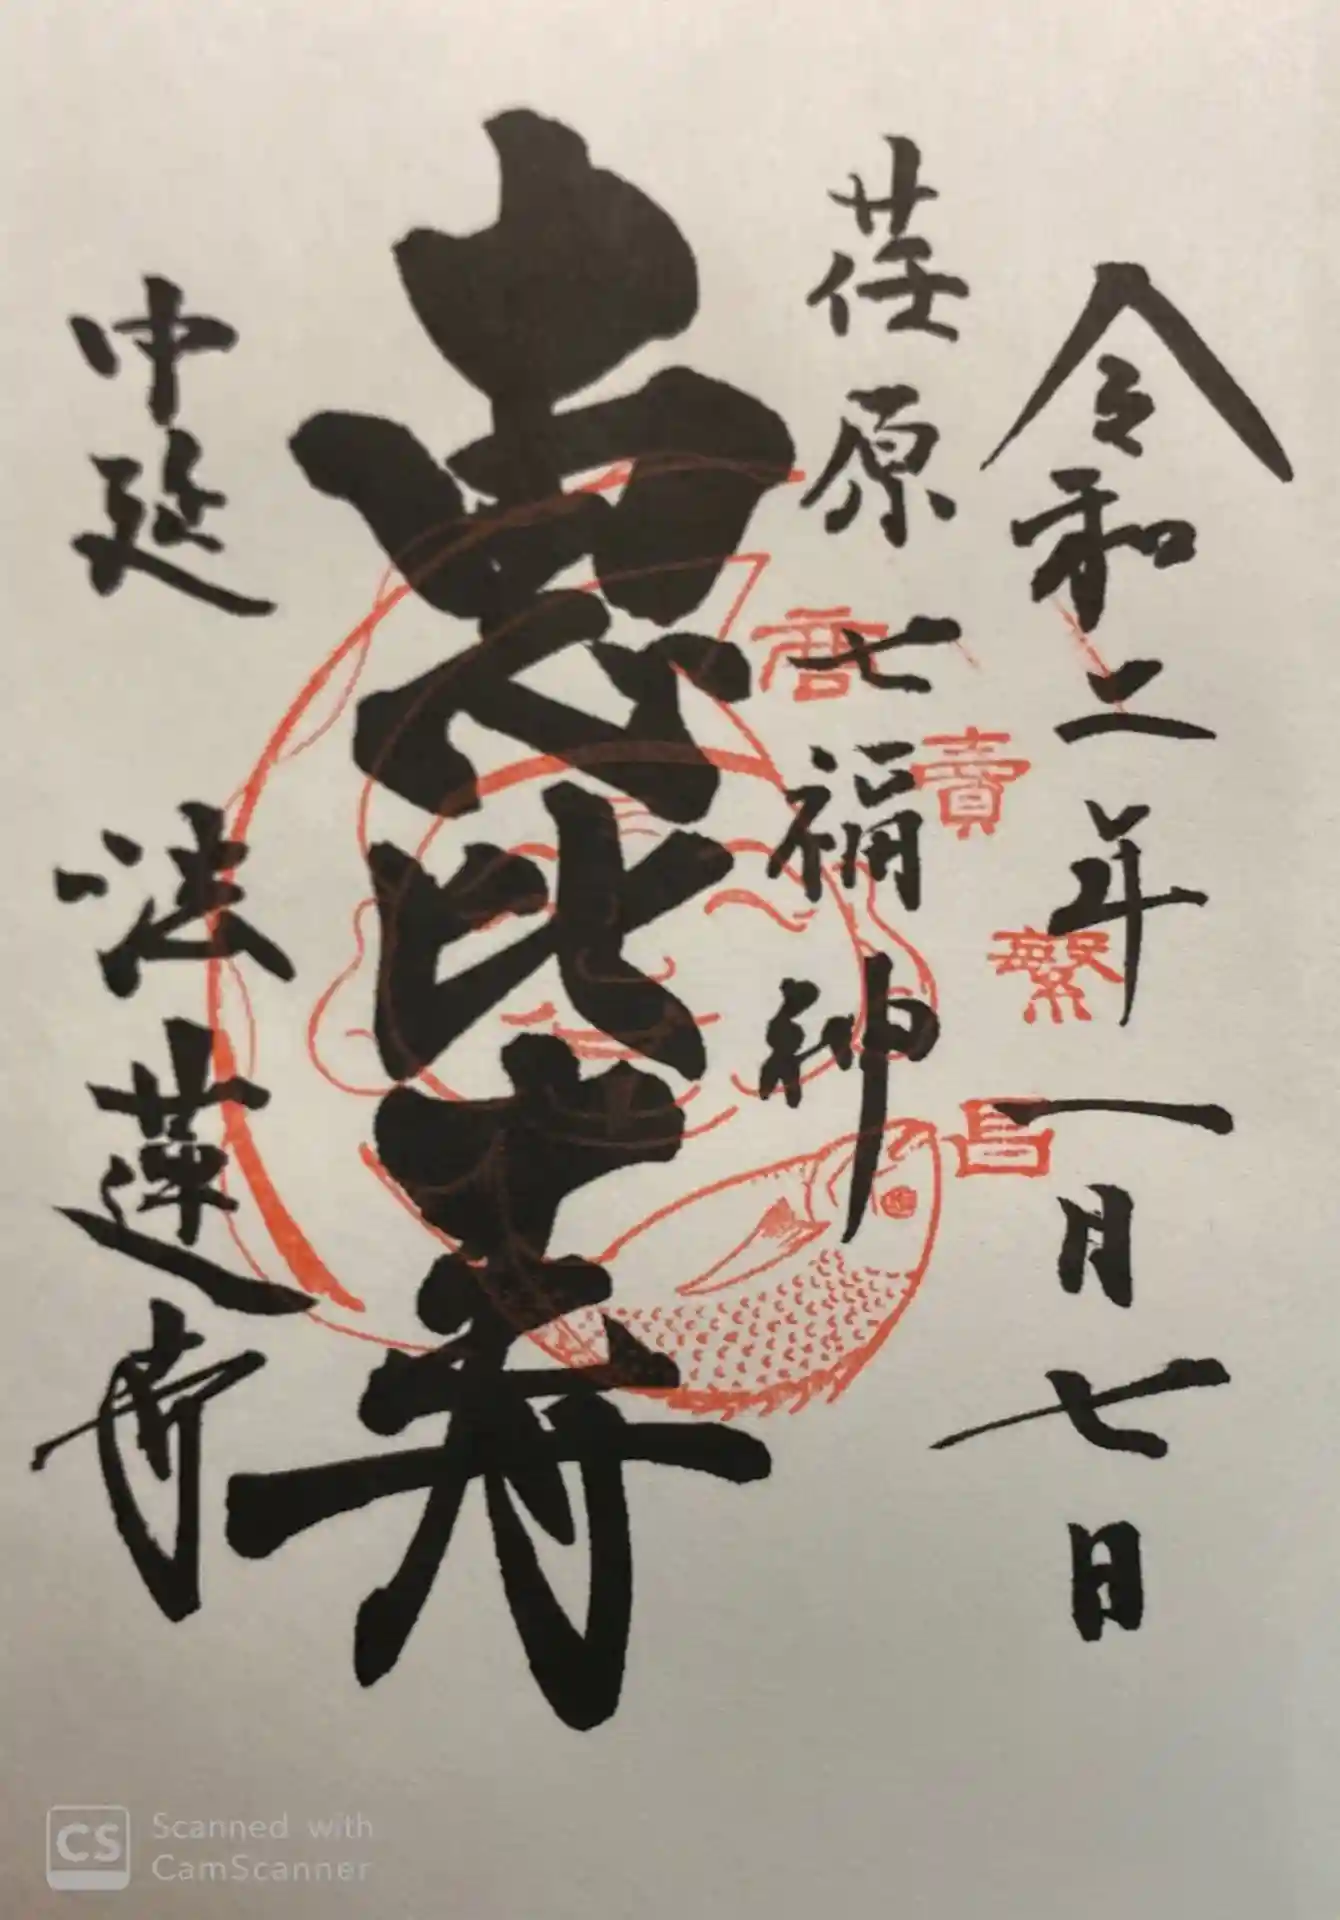 令和二年一月七日
荏原七福神
恵比寿
中延 法蓮寺
商賣繁昌
CS Scanned with
CamScanner